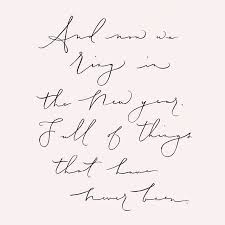 And now we
Ring in
the New year.
Full of things
that have
never been.